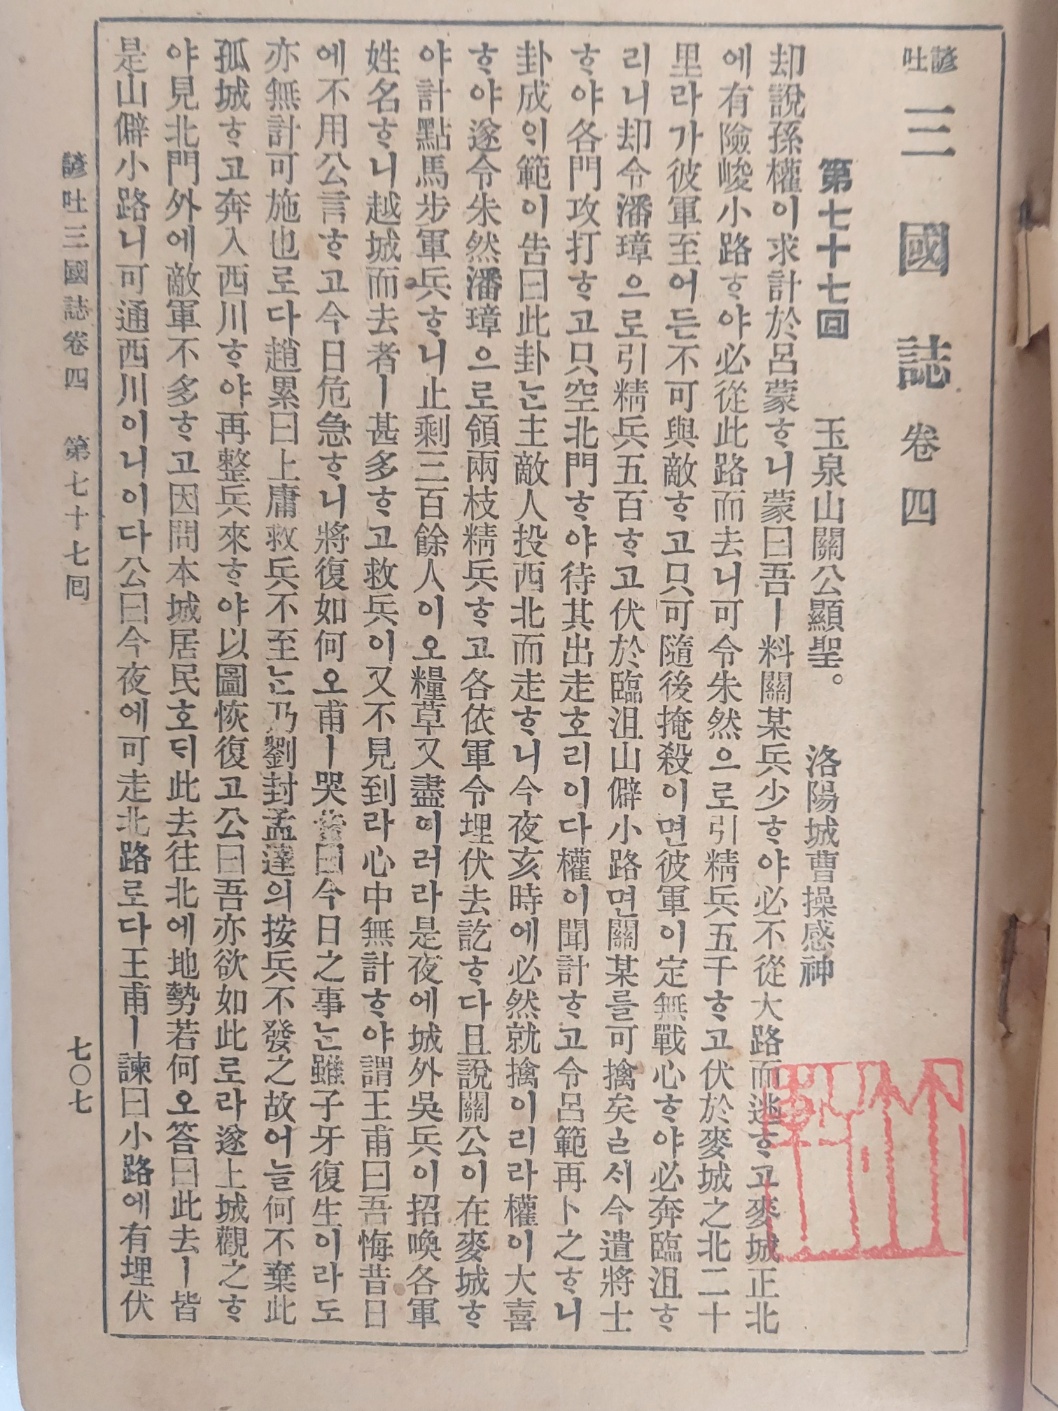 諺吐 三國誌 卷四
第七十七回 玉泉山關公顯聖。 洛陽城曹操感神
却說孫權이求計於呂蒙ᄒᆞ니蒙曰吾ㅣ料關某兵少ᄒᆞ야必不從大路而逃ᄒᆞ고麥城正北
에有險峻小路ᄒᆞ야必從此路而去니可令朱然으로引精兵五千ᄒᆞ고伏於麥城之北二十
里라가彼軍至어든不可與敵ᄒᆞ고只可隨後掩殺이면彼軍이定無戰心ᄒᆞ야必奔臨沮ᄒᆞ
리니却令潘璋으로引精兵五百ᄒᆞ고伏於臨沮山僻小路면關某를可擒矣ᄂᆞᆫ서今遣將士
ᄒᆞ야各門攻打ᄒᆞ고只空北門ᄒᆞ야待其出走호리이다權이聞計ᄒᆞ고令呂範再卜之ᄒᆞ니
卦成이範이告曰此卦ᄂᆞᆫ主敵人投西北而走ᄒᆞ니今夜亥時에必然就擒이리라權이大喜
ᄒᆞ야遂令朱然潘璋으로領兩枝精兵ᄒᆞ고各依軍令埋伏去訖ᄒᆞ다且說關公이在麥城ᄒᆞ
야計點馬步軍兵ᄒᆞ니止剩三百餘人이오糧草又盡이러라是夜에城外吳兵이招喚各軍
姓名ᄒᆞ니越城而去者ㅣ甚多ᄒᆞ고救兵이又不見到라心中無計ᄒᆞ야謂王甫曰吾悔昔日
에不用公言ᄒᆞ고今日危急ᄒᆞ니將復如何오甫ㅣ哭告曰今日之事ᄂᆞᆫ雖子牙復生이라도
亦無計可施也로다趙累曰上庸救兵不至ᄂᆞᆫ乃劉封孟達의按兵不發之故어늘何不棄此
孤城ᄒᆞ고奔入西川ᄒᆞ야再整兵來ᄒᆞ야以圖恢復고公曰吾亦欲如此로라遂上城觀之ᄒᆞ
야見北門外에敵軍不多ᄒᆞ고因問本城居民호ᄃᆡ此去往北에地勢若何오答曰此去ㅣ皆
是山僻小路니可通西川이니이다公曰今夜에可走北路로다王甫ㅣ諫曰小路에有埋伏
諺吐三國誌卷四 第七十七回 七〇七